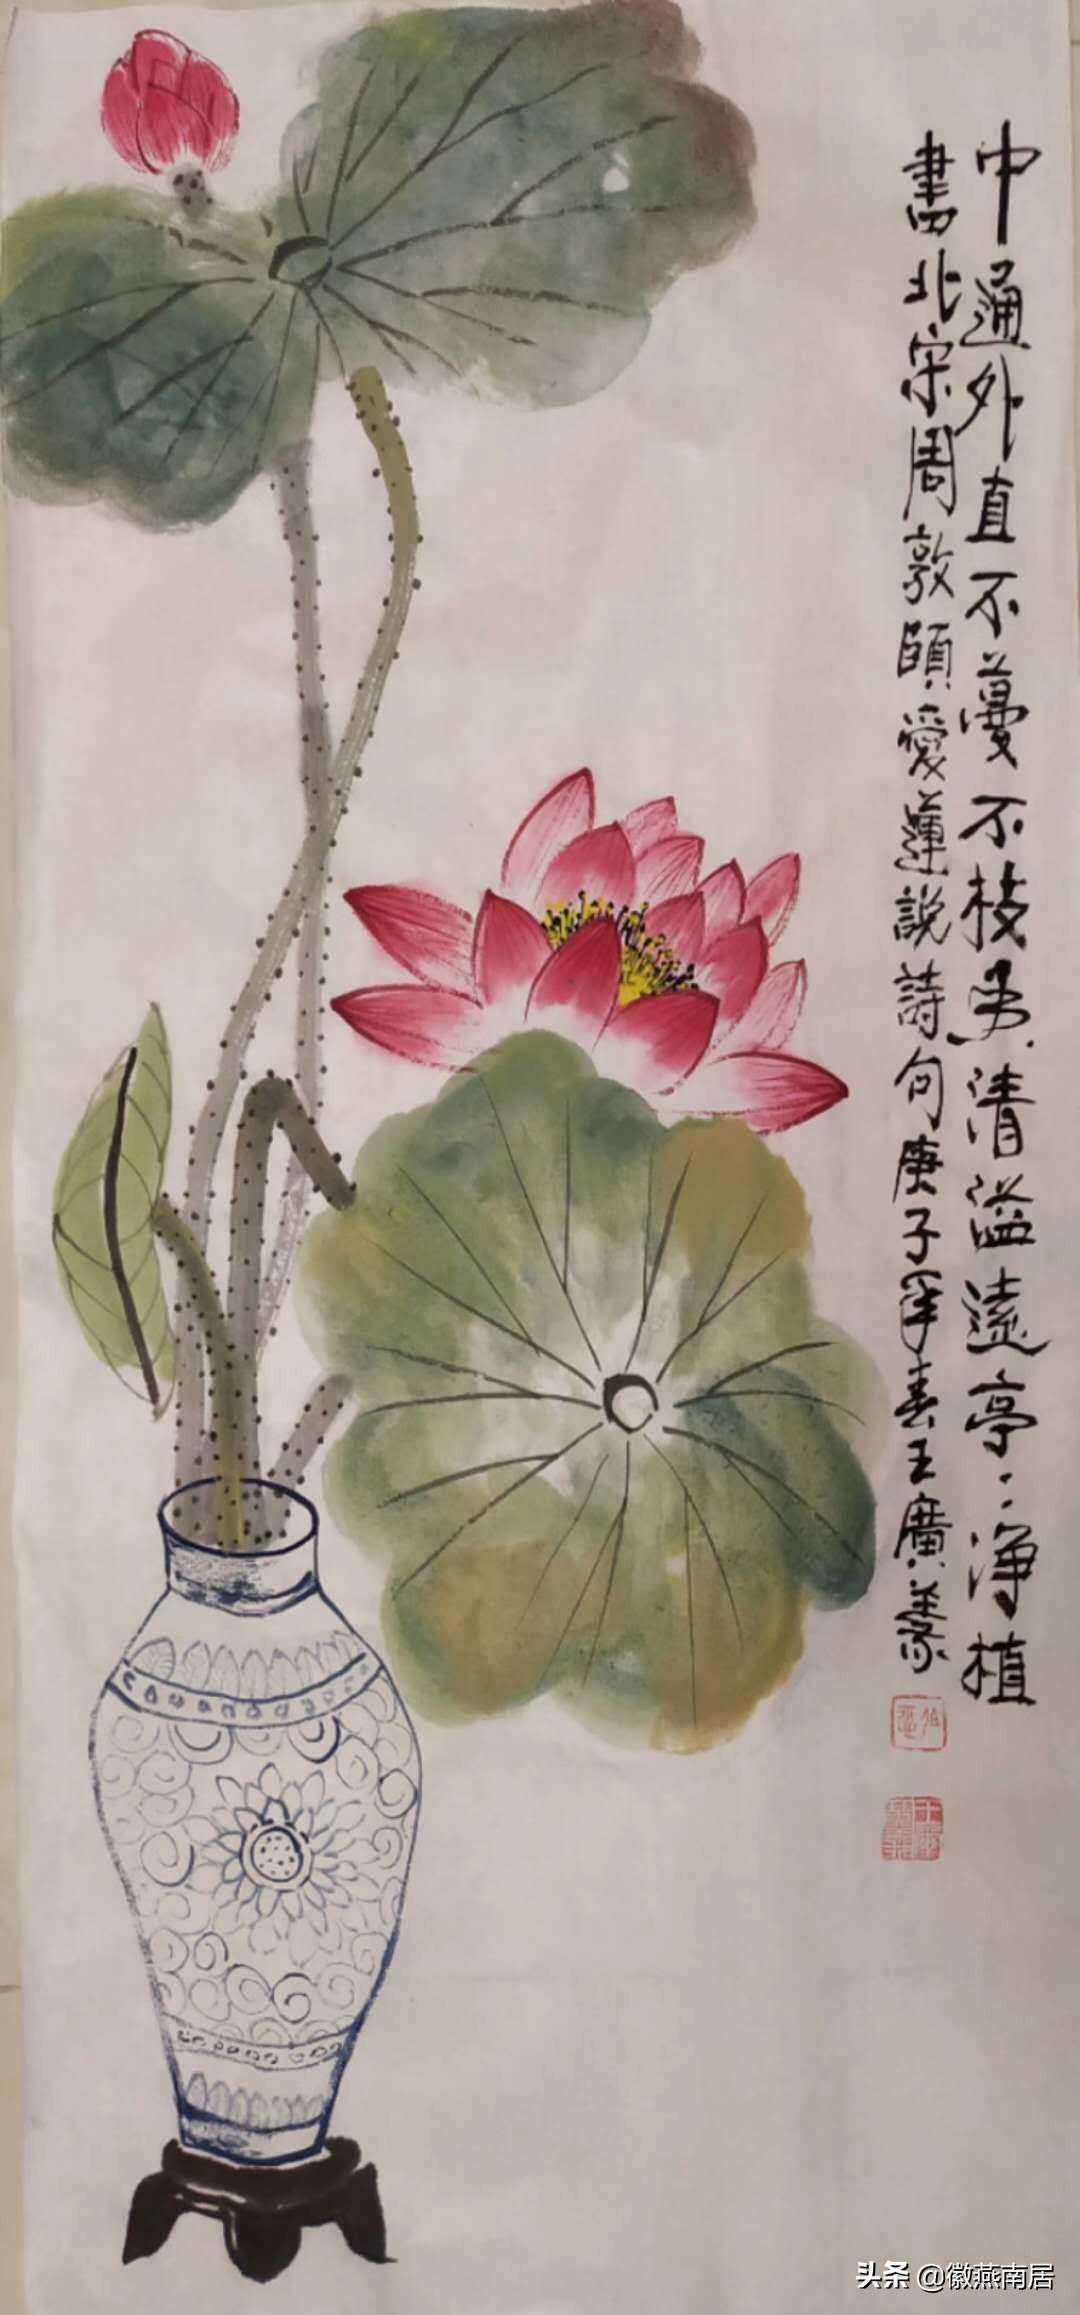 中通外直不蔓不枝香清溢遠亭〻淨植
書北宋周敦頤愛蓮說詩句庚子年春王廣義
头条 @徽燕南居